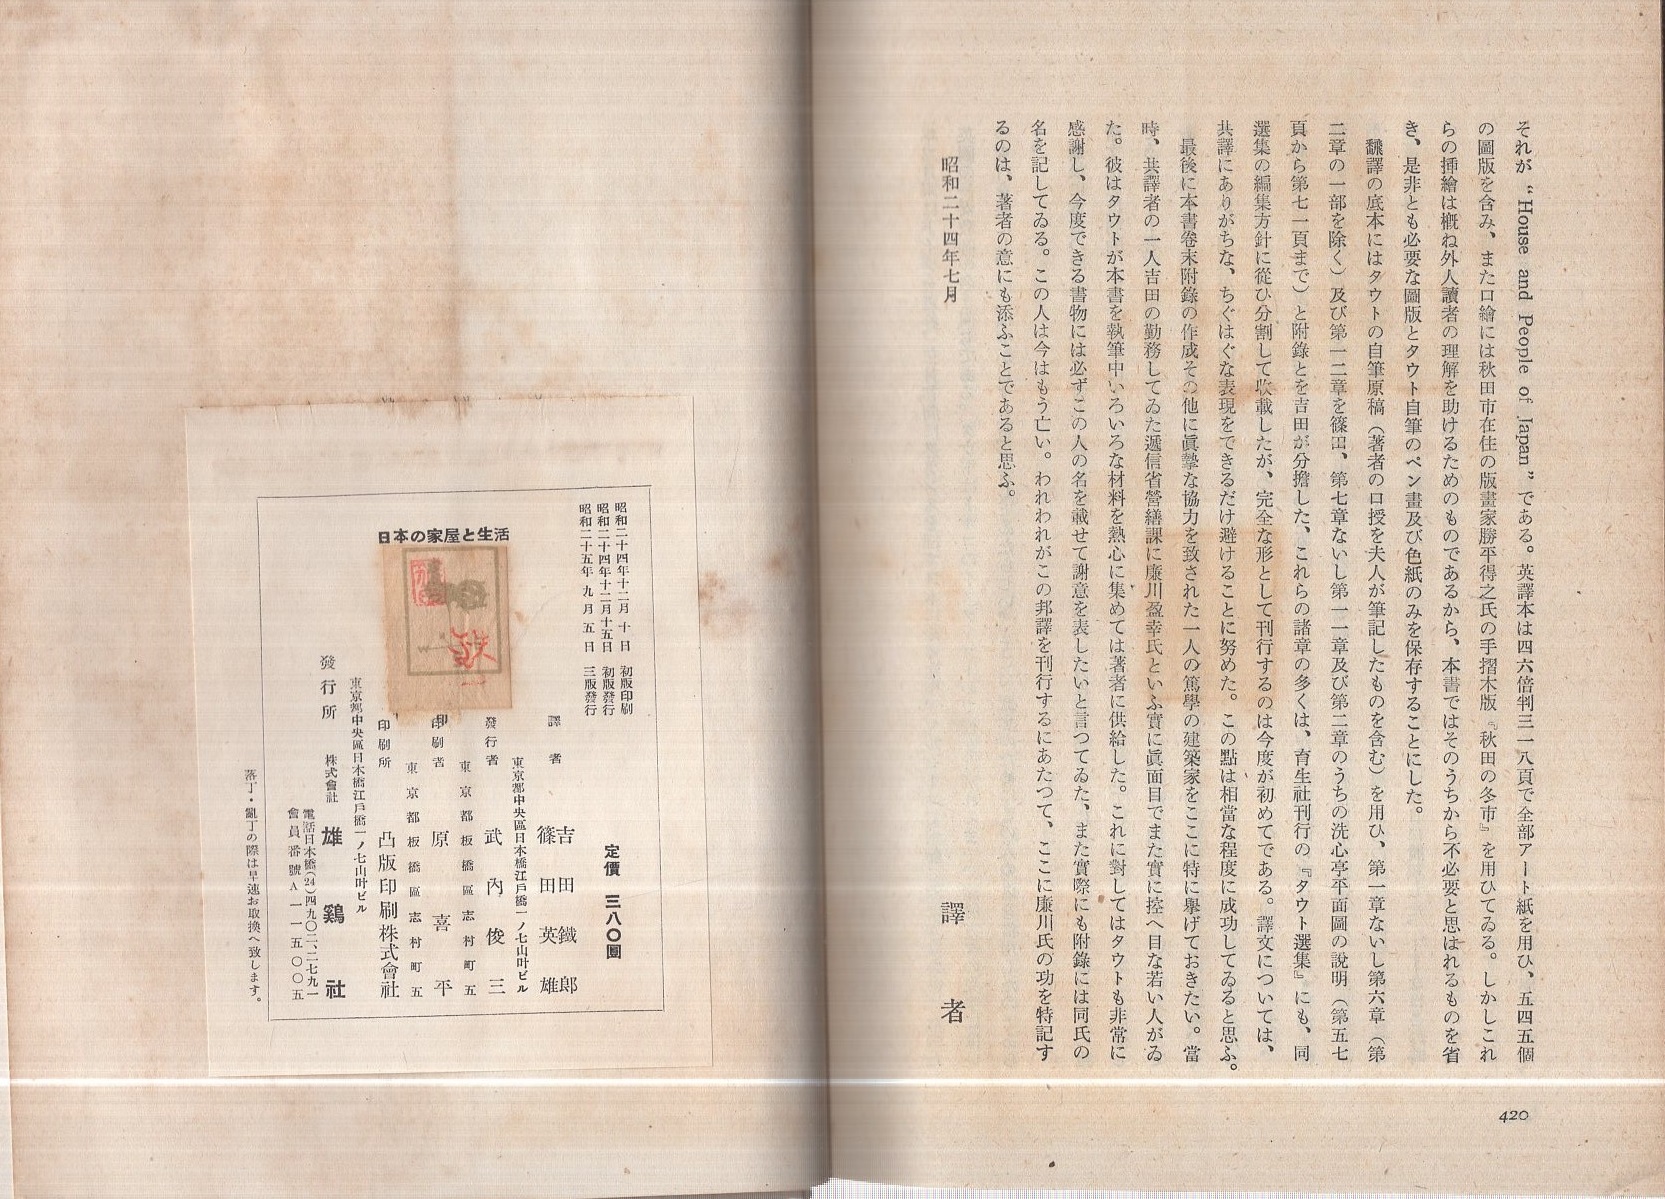 それが“House and People of Japan”である。英譯本は四六倍判三一八頁で全部アート紙を用ひ、五四五個
の圖版を含み、また口繪には秋田市在住の版畫家勝平得之氏の手摺木版『秋田の冬市』を用ひてゐる。しかしこれ
らの挿繪は概ね外人讀者の理解を助けるためのものであるから、本書ではそのうちから不必要と思はれるものを省
き、是非とも必要な圖版とタウト自筆のペン畫及び色紙のみを保存することにした。
飜譯の底本にはタウトの自筆原稿（著者の口授を夫人が筆記したものを含む）を用ひ、第一章ないし第六章（第
二章の一部を除く）及び第一二章を篠田、第七章ないし第一一章及び第二章のうちの洗心亭平面圖の說明（第五七
頁から第七一頁まで）と附錄とを吉田が分擔した、これらの諸章の多くは、育生社刊行の『タウト選集』にも、同
選集の編集方針に從ひ分割して收載したが、完全な形として刊行するのは今度が初めてである。譯文については、
共譯にありがちな、ちぐはぐな表現をできるだけ避けることに努めた。この點は相當な程度に成功してゐると思ふ。
最後に本書卷末附錄の作成その他に眞摯な協力を致された一人の篤學の建築家をここに特に擧げておきたい。當
時、共譯者の一人吉田の勤務してゐた遞信省營繕課に廉川盈幸氏といふ實に眞面目でまた實に控へ目な若い人がゐ
た。彼はタウトが本書を執筆中いろいろな材料を熱心に集めては著者に供給した。これに對してはタウトも非常に
感謝し、今度できる書物には必ずこの人の名を載せて謝意を表したいと言つてゐた、また實際にも附錄には同氏の
名を記してゐる。この人は今はもう亡い。われわれがこの邦譯を刊行するにあたつて、ここに廉川氏の功を特記す
るのは、著者の意にも添ふことであると思ふ。
昭和二十四年七月
譯者
420
昭和二十四年十二月十日 初版印刷
昭和二十四年十二月十五日 初版發行
昭和二十五年九月五日 三版發行
日本の家屋と生活
定價 三八〇圓
譯者 吉田鐵郎
篠田英雄
東京都中央區日本橋江戸橋一ノ七山叶ビル
發行者 武內俊三
東京都板橋區志村町五
印刷者 原喜平
東京都板橋區志村町五
印刷所 凸版印刷株式會社
東京都中央區日本橋江戸橋一ノ七山叶ビル
發行所 株式會社 雄鷄社
電話日本橋(24)四九〇二、二七九一
會員番號A一一五〇〇五
落丁・亂丁の際は早速お取換へ致します。